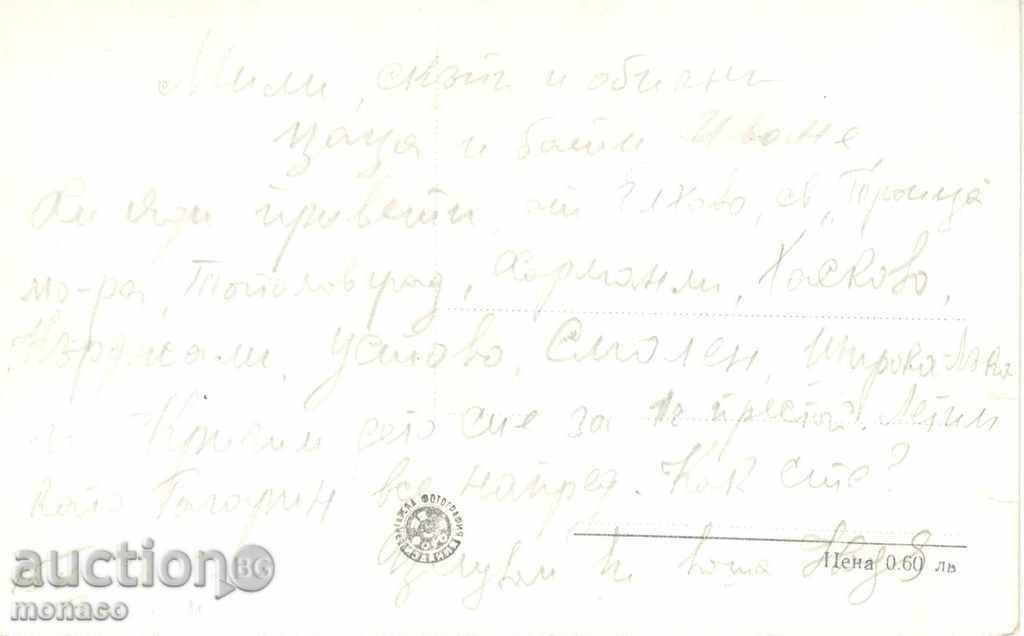 Мили, скъпи и обичани
Цаца и бати Иване,
Хиляди привети от Елхово, св. Троица
мо-ра, Тополовград, Харманли, Хасково,
Кърджали, Устово, Смолен, Широка-Лъка
и Кричим дето сме за 1ч престой. Летим
като Гагарин все напред. Как сте?
Целувки
ФОТОГРАФИЯ
Цена 0.60 лв
auction BG
monaco